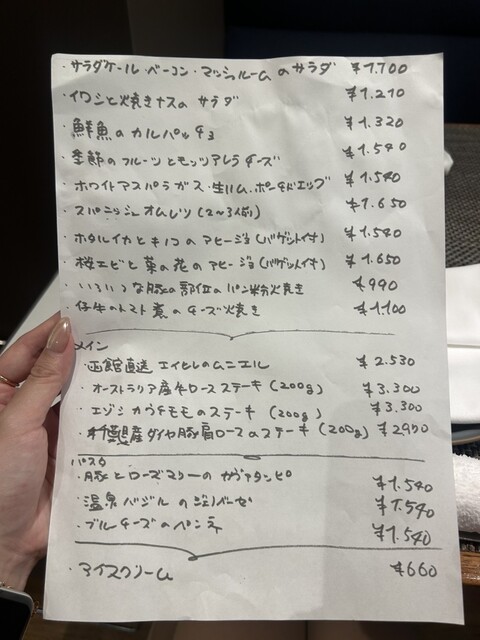 ・サラダケール・ベーコン・マッシュルームのサラダ ¥1.700
・イワシと焼きナスのサラダ ¥1.210
・鮮魚のカルパッチョ ¥1.320
・季節のフルーツとモッツァレラチーズ ¥1.540
・ホワイトアスパラガス・生ハム・ポーチドエッグ ¥1.540
・スパニッシュオムレツ(2〜3人前) ¥1.650
・ホタルイカとキノコのアヒージョ(バゲット付) ¥1.540
・桜エビと菜の花のアヒージョ(バゲット付) ¥1.650
・いろいろな豚の部位のパン粉焼き ¥990
・仔牛のトマト煮のチーズ焼き ¥1100
メイン
・函館直送エイヒレのムニエル ¥2.530
・オーストラリア産牛ロースステーキ(200g) ¥3.300
・エゾシカウチモモのステーキ(200g) ¥3.300
・千葉県産ダイヤ豚肩ロースのステーキ(200g) ¥2970
パスタ
・豚とローズマリーのカヴァタッピ ¥1.540
・温泉バジルのジェノベーゼ ¥1.540
・ブルーチーズのペンネ ¥1.540
・アイスクリーム ¥660